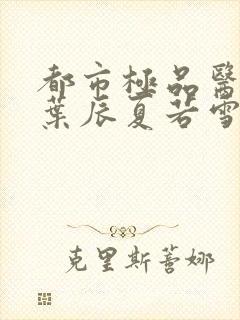 都市極品醫
葉辰夏若雪
克里斯蒂娜